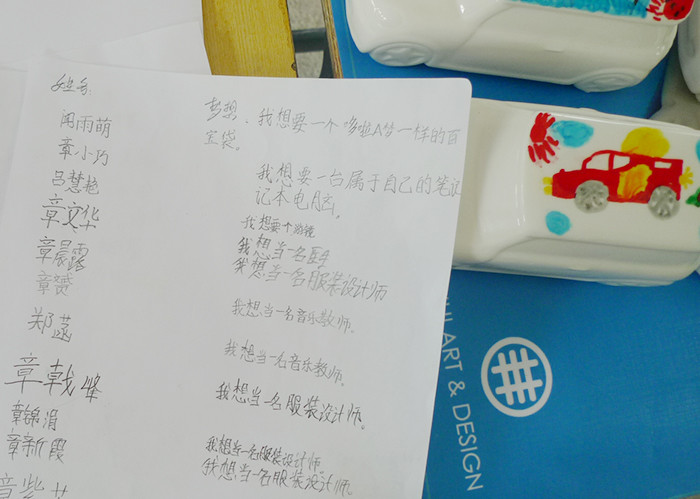 姓名:
梦想.我想要一个哆啦A梦一样的百
宝袋。
闻雨萌
章小巧
我想要一台属于自己的笔记
记本电脑。
吕慧艳
章文华
我想要个游镜
章晨露
我想当一名医生
章赟
我想当一名服装设计师
我想当一名音乐教师。
郑蓤
我想当一名音乐教师。
章戟峰
我想当一名服装设计师。
章锦涓
章新霞
我想当一名服装设计师。
我想当一名服装设计师。
章紫
ART & DESIGN